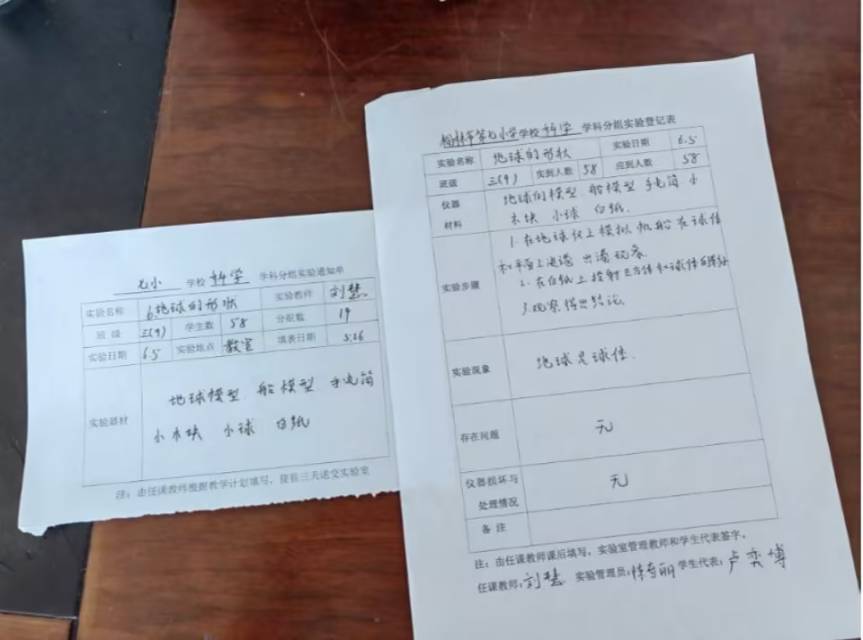 七小 学校 科学 学科分组实验通知单
实验名称 6地球的形状 实验教师 刘慧
班级 三(9) 学生数 58 分组数 19
实验日期 6.5 实验地点 教室 填表日期 5.26
实验器材
地球模型 船模型 手电筒
小木块 小球 白纸
注：由任课教师根据教学计划填写，提前三天送交实验室
市第七小学学校 科学 学科分组实验登记表
实验名称 地球的形状 实验日期 6.5
班级 三(9) 实到人数 58 应到人数 58
仪器材料
地球的模型 船模型 手电筒 小
木块 小球 白纸.
实验步骤
1.在地球仪上模拟帆船在球体
和平面上进港 出港现象
2.在白纸上投射正方体和球体的
3.观察得出结论.
实验现象 地球是球体.
存在问题 无
仪器损坏与处理情况 无
备注
注：由任课教师课后填写，实验室管理教师和学生代表签字。
任课教师：刘慧 实验管理员：丽 学生代表：卢奕博